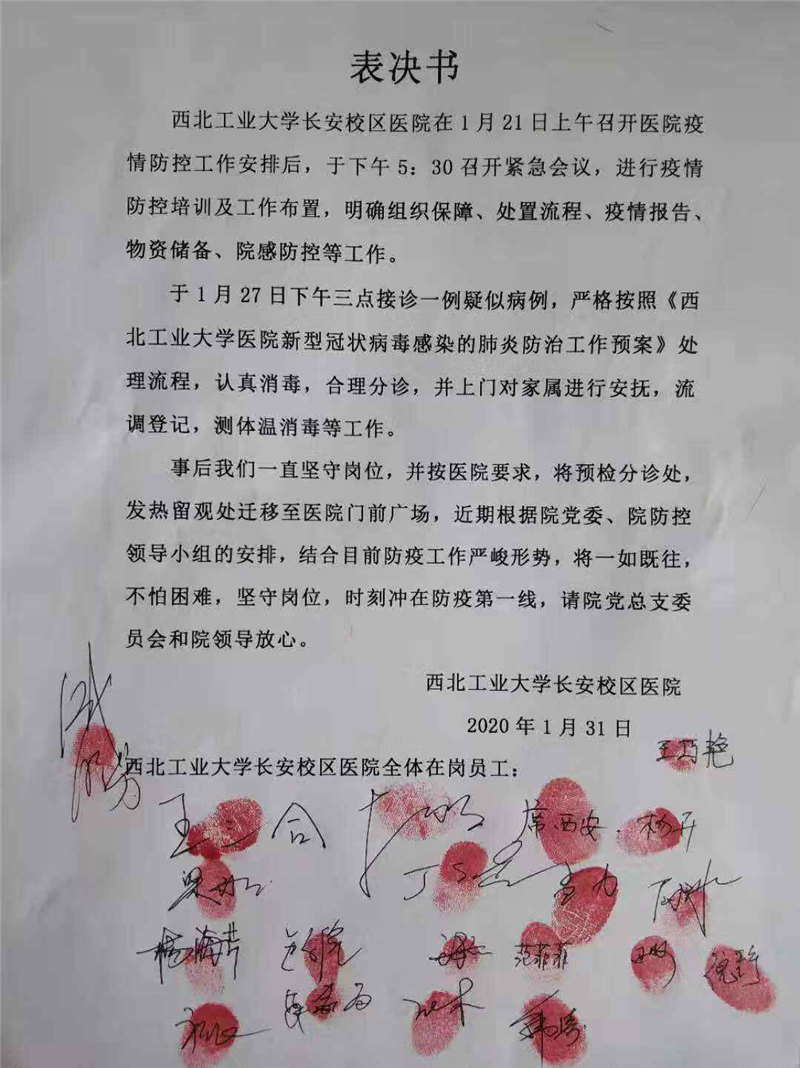 表决书
西北工业大学长安校区医院在1月21日上午召开医院疫
情防控工作安排后，于下午5：30召开紧急会议，进行疫情
防控培训及工作布置，明确组织保障、处置流程、疫情报告、
物资储备、院感防控等工作。
于1月27日下午三点接诊一例疑似病例，严格按照《西
北工业大学医院新型冠状病毒感染的肺炎防治工作预案》处
理流程，认真消毒，合理分诊，并上门对家属进行安抚，流
调登记，测体温消毒等工作。
事后我们一直坚守岗位，并按医院要求，将预检分诊处，
发热留观处迁移至医院门前广场，近期根据院党委、院防控
领导小组的安排，结合目前防疫工作严峻形势，将一如既往，
不怕困难，坚守岗位，时刻冲在防疫第一线，请院党总支委
员会和院领导放心。
西北工业大学长安校区医院
2020年1月31日
西北工业大学长安校区医院全体在岗员工：
王巧艳
王三合 席西安 杨开
王力
杨海芹 范菲菲